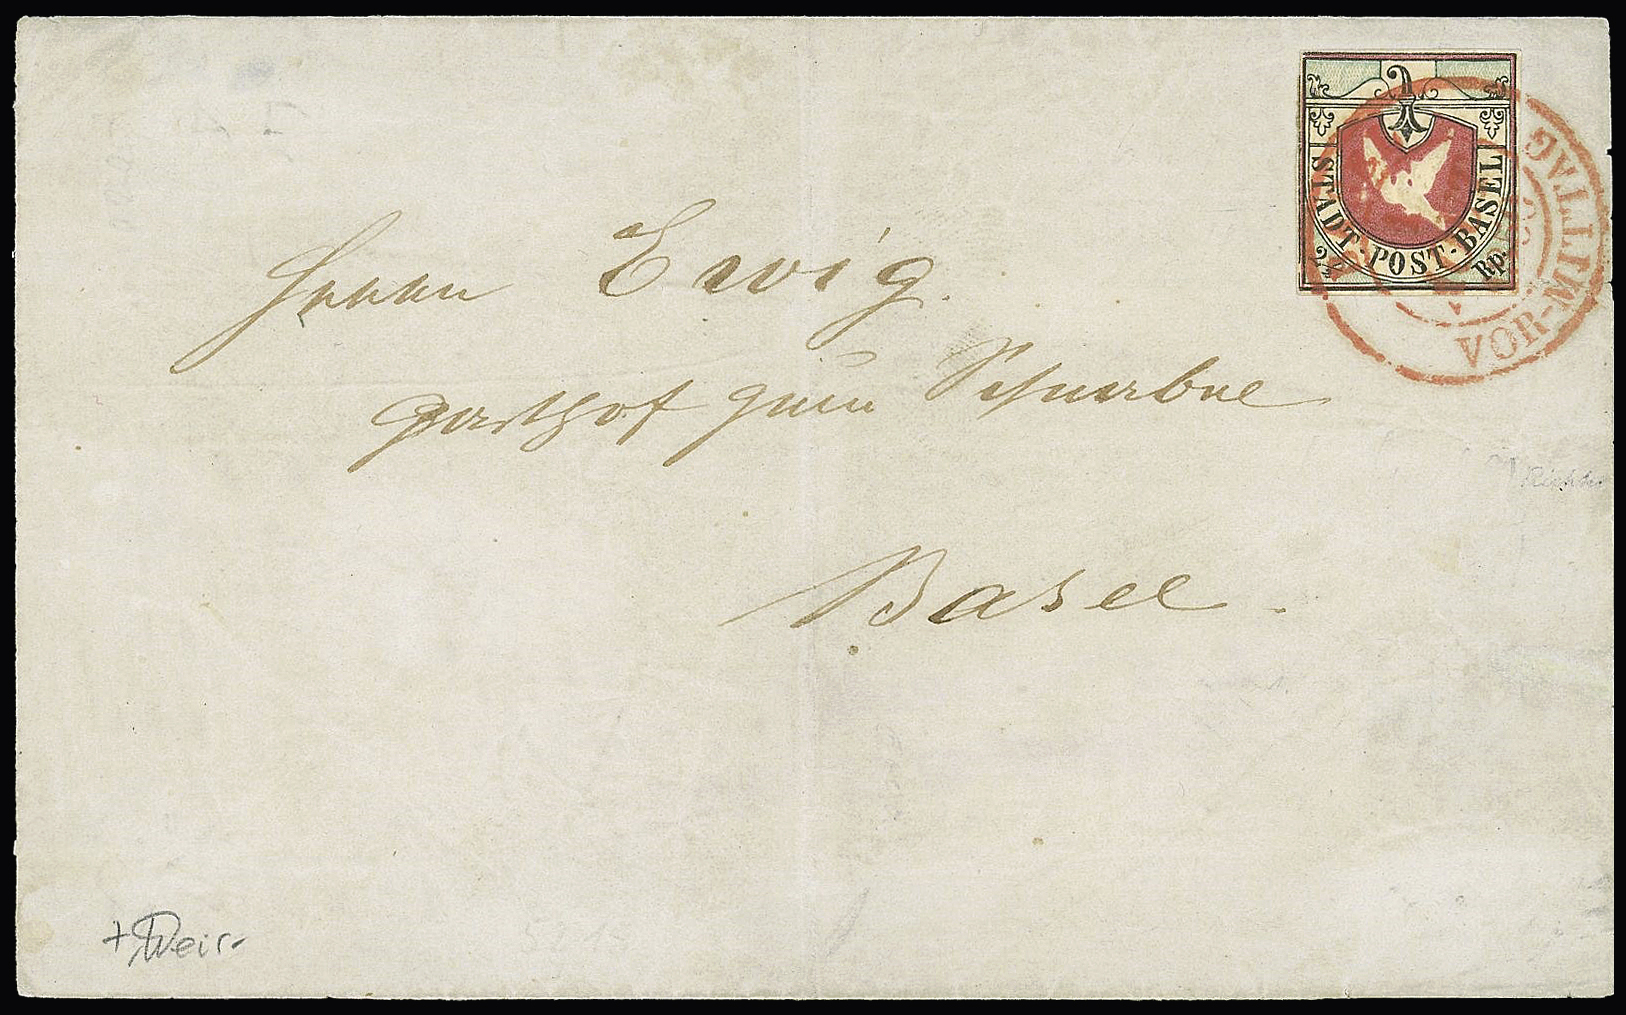 STADT·POST·BASEL
2½ Rp.
VOR-MITTAG
Herrn Ewig.
Gasthof zum Schwarbne
Basel.
Richter